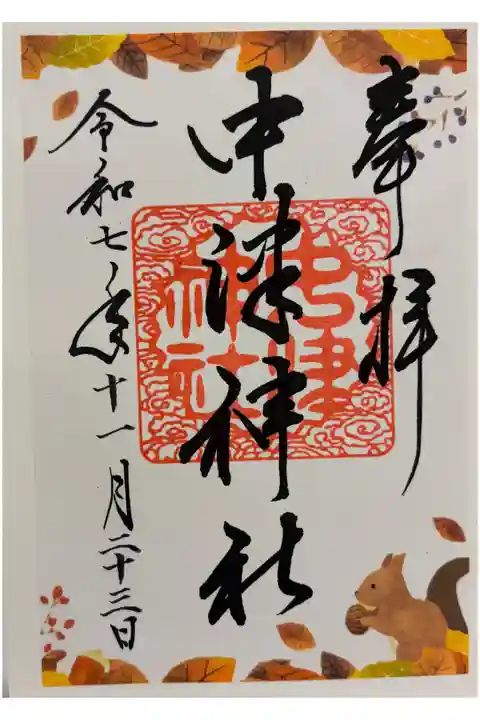 奉拝
中津神社
中津
神社
令和七年十一月二十三日